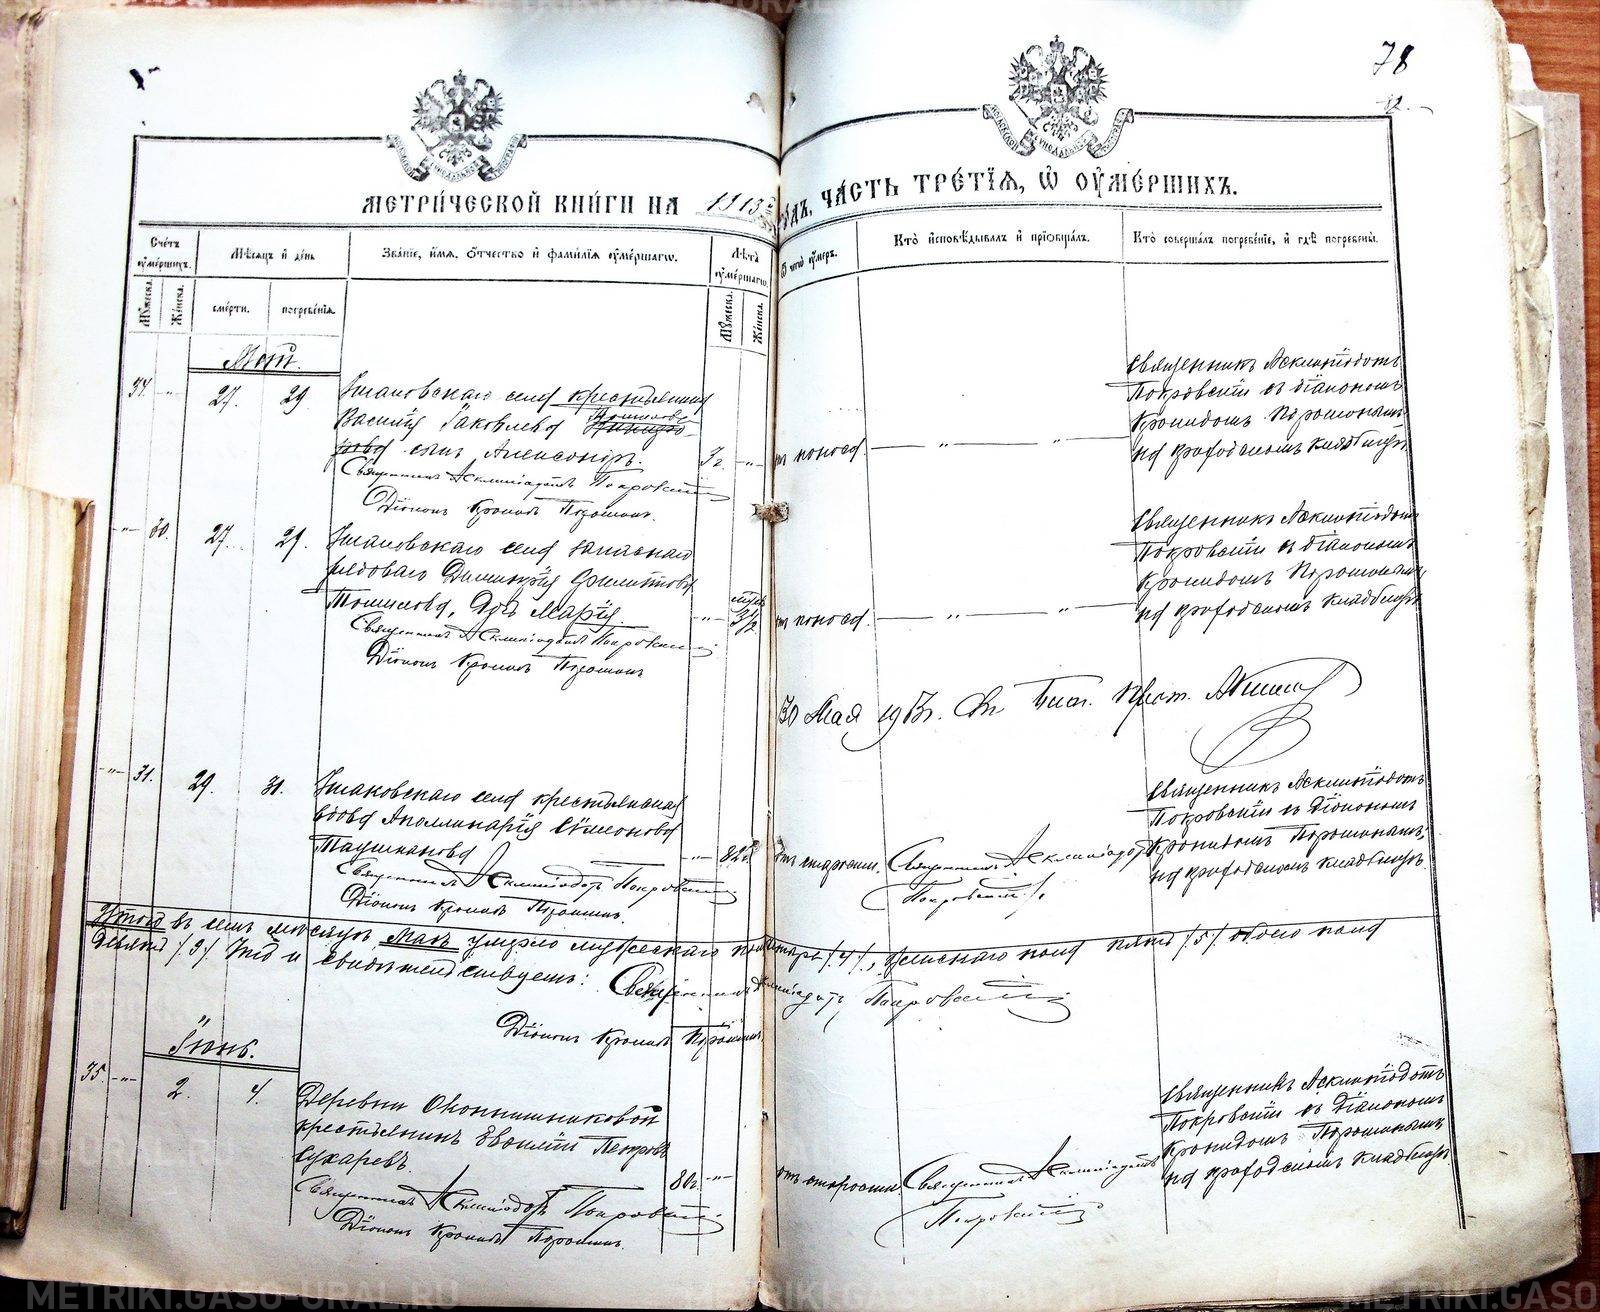 METRIKI.GASO-URAL.RU
78
МЕТРИ́ЧЕСКОЙ КНИ́ГИ НА 1913 го́дъ, ЧА́СТЬ ТРЕ́ТІѦ, Ѽ ОУ҆МЕ́РШИХЪ.
Сче́тъ оу҆ме́ршихъ.
Мѣ́сяцъ и҆ де́нь
Зва́нїе, и҆́мѧ, ѻ҆́тчество и҆ фами́лїѧ оу҆ме́ршагѡ.
Лѣ́та оу҆ме́ршагѡ.
Ѿ чегѡ̀ оу҆́меръ.
Кто̀ и҆сповѣ́дывалъ и҆ прїѡбща́лъ.
Кто̀ соверша́лъ погребе́нїе, и҆ гдѣ̀ погребены̀.
Му́жеска.
Же́нска.
сме́рти.
погребе́нїѧ.
Му́жеска.
Же́нска.
Май.
34. -"- 27. 29. села крестьянина
Василія Іаковлева
сынъ Александръ. 3 г. -"-
Священникъ Асклипіодотъ Покровскій
Діаконъ Кронидъ Порошинъ.
отъ поноса. — " — "
Священникъ Асклипіодотъ
Покровскій съ діакономъ
Кронидомъ Порошинымъ
на приходскомъ кладбищѣ
-"- 30. 27. 29. села запаснаго
рядоваго Димитрія Филиппова
дочь Марія. -"- 3½
Священникъ Асклипіодотъ Покровскій
Діаконъ Кронидъ Порошинъ
отъ поноса. — " — "
Священникъ Асклипіодотъ
Покровскій съ діакономъ
Кронидомъ Порошинымъ
на приходскомъ кладбищѣ
30 Мая 1913 г. Прот.
-"- 31. 29. 31. села крестьянская
вдова Аполлинарія Сѵмеонова
Таушканова -"- 82 г.
Священникъ Асклипіодотъ Покровскій
Діаконъ Кронидъ Порошинъ.
отъ старости. Священникъ Асклипіодотъ
Покровскій
Священникъ Асклипіодотъ
Покровскій съ Діакономъ
Кронидомъ Порошинымъ
на приходскомъ кладбищѣ
Итого въ семъ мѣсяцѣ Маѣ умерло мужескаго пола четыре /4/, женскаго пола пять /5/ обоего пола
девять /9/ Что и свидѣтельствуемъ: Священникъ Асклипіодотъ Покровскій
Діаконъ Кронидъ Порошинъ
Іюнь.
35. -"- 2. 4. Деревни
крестьянинъ Петровъ
Сухаревъ. 80 г. -"-
Священникъ Асклипіодотъ Покровскій
Діаконъ Кронидъ Порошинъ.
отъ старости. Священникъ Асклипіодотъ
Покровскій
Священникъ Асклипіодотъ
Покровскій съ Діакономъ
Кронидомъ Порошинымъ
на приходскомъ кладбищѣ
METRIKI.GASO-URAL.RU